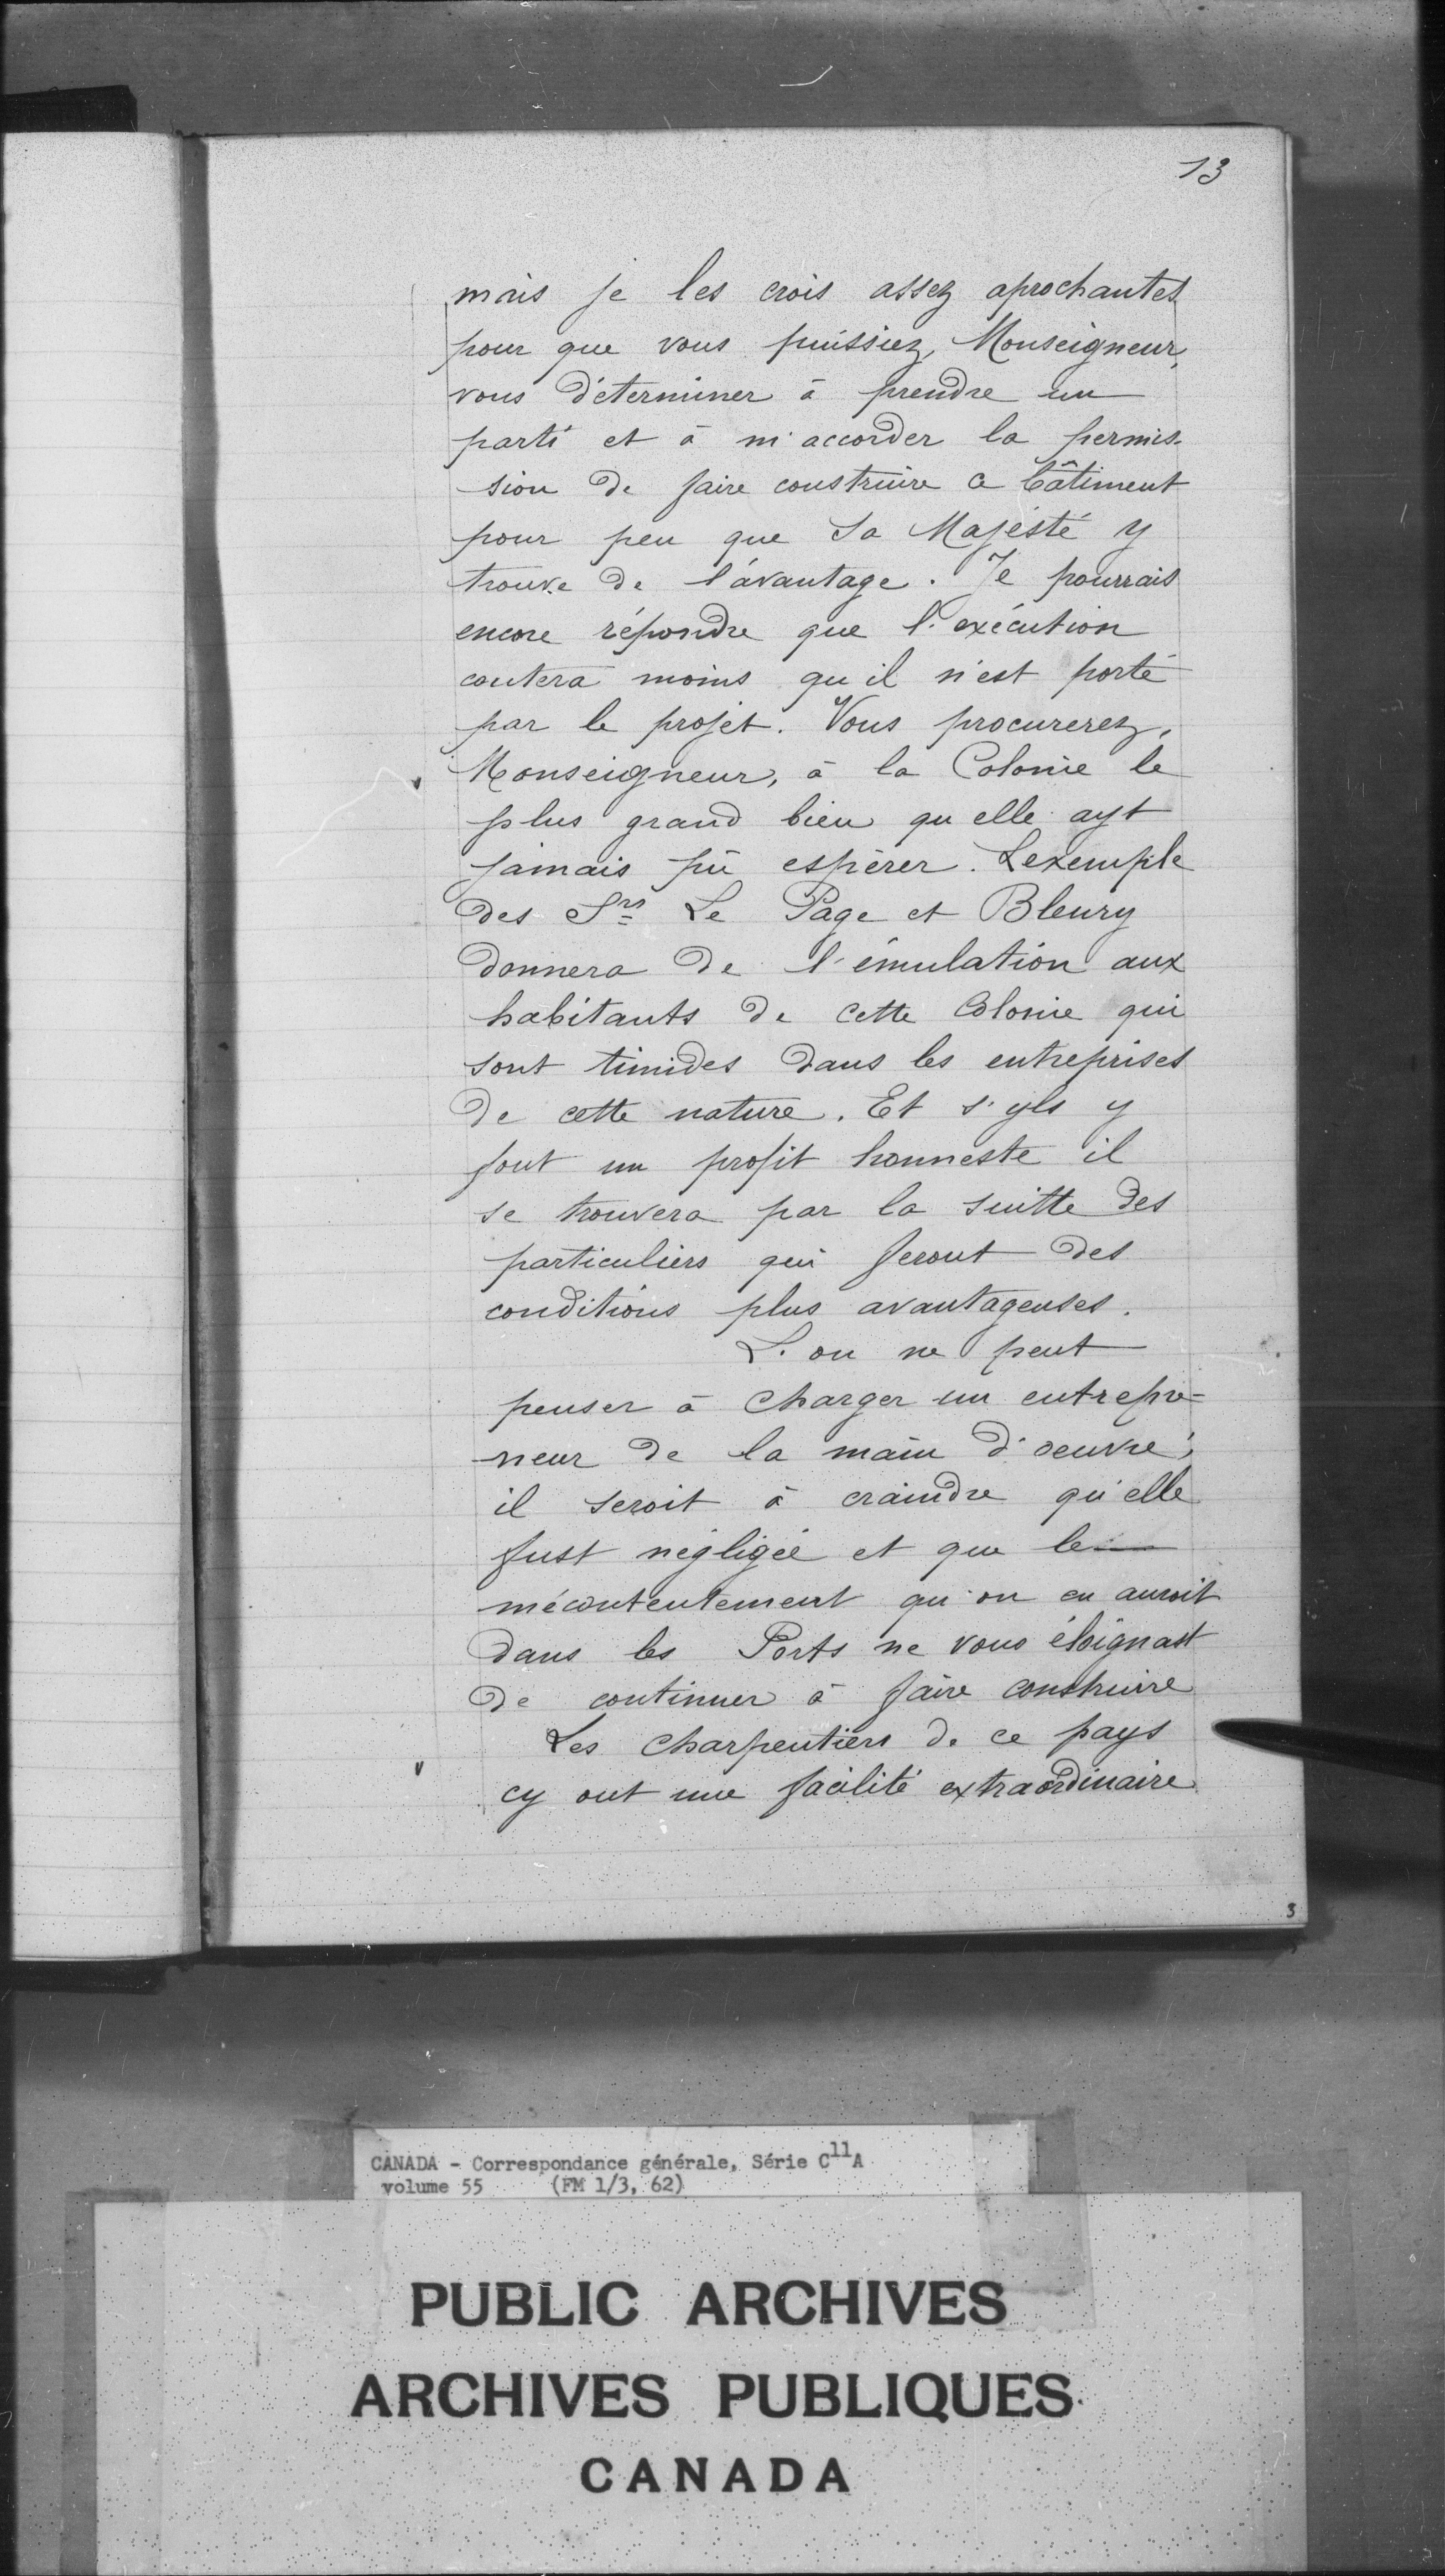 13
mais je les crois assez aprochantes
pour que vous puissiez, Monseigneur,
vous déterminer à prendre un
parti et à m'accorder la permis-
sion de faire construire ce bâtiment
pour peu que Sa Majesté y
trouve de l'avantage. Je pourrais
encore répondre que l'exécution
coutera moins qu'il n'est porté
par le projet. Vous procurerez,
Monseigneur, à la Colonie le
plus grand bien qu'elle ayt
jamais pû espérer. L'exemple
des Srs Le Page et Bleury
donnera de l'émulation aux
habitants de cette Colonie qui
sont timides dans les entreprises
de cette nature. Et s'yls y
font un profit honneste il
se trouvera par la suitte des
particuliers qui feront des
conditions plus avantageuses.
L'on ne peut
penser à charger un entrepre=
neur de la main d'oeuvre,
il seroit à craindre qu'elle
fust négligée et que le
mécontentement qu'on en auroit
dans les Ports ne vous éloignast
de continuer à faire construire
Les charpentiers de ce pays
cy ont une facilité extraordinaire
3
CANADA - Correspondance générale, Série C11A
volume 55 (FM 1/3, 62)
PUBLIC ARCHIVES
ARCHIVES PUBLIQUES
CANADA